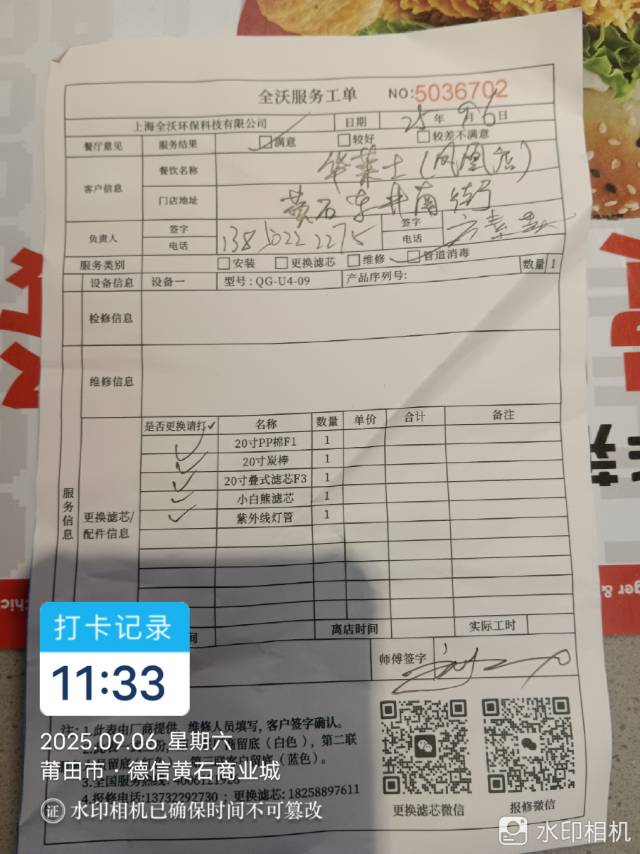 全沃服务工单 NO:5036702
上海全沃环保科技有限公司 日期 25年9月6日
餐厅意见 服务结果 满意 较好 较差不满意
客户信息 餐饮名称 华莱士(凤凰店)
门店地址 黄石东井南街
负责人 签字 电话 13850222275 签字 电话
服务类别 安装 更换滤芯 维修 管道消毒 数量 1
设备信息 设备一 型号:QG-U4-09 产品序列号:
检修信息
维修信息
服务信息
更换滤芯/配件信息
是否更换请打✓ 名称 数量 单价 合计 备注
✓ 20寸PP棉F1 1
✓ 20寸炭棒 1
✓ 20寸叠式滤芯F3 1
✓ 小白熊滤芯 1
✓ 紫外线灯管 1
间 离店时间 实际工时
师傅签字
注:1.此表由厂商提供,维修人员填写,客户签字确认。
留底(白色),第二联
客户留底(蓝色)。
3.全国服务热线:
4.报修电话:13732292730;更换滤芯:18258897611
更换滤芯微信 报修微信
打卡记录
11:33
2025.09.06 星期六
莆田市·德信黄石商业城
证 水印相机已确保时间不可篡改
水印相机